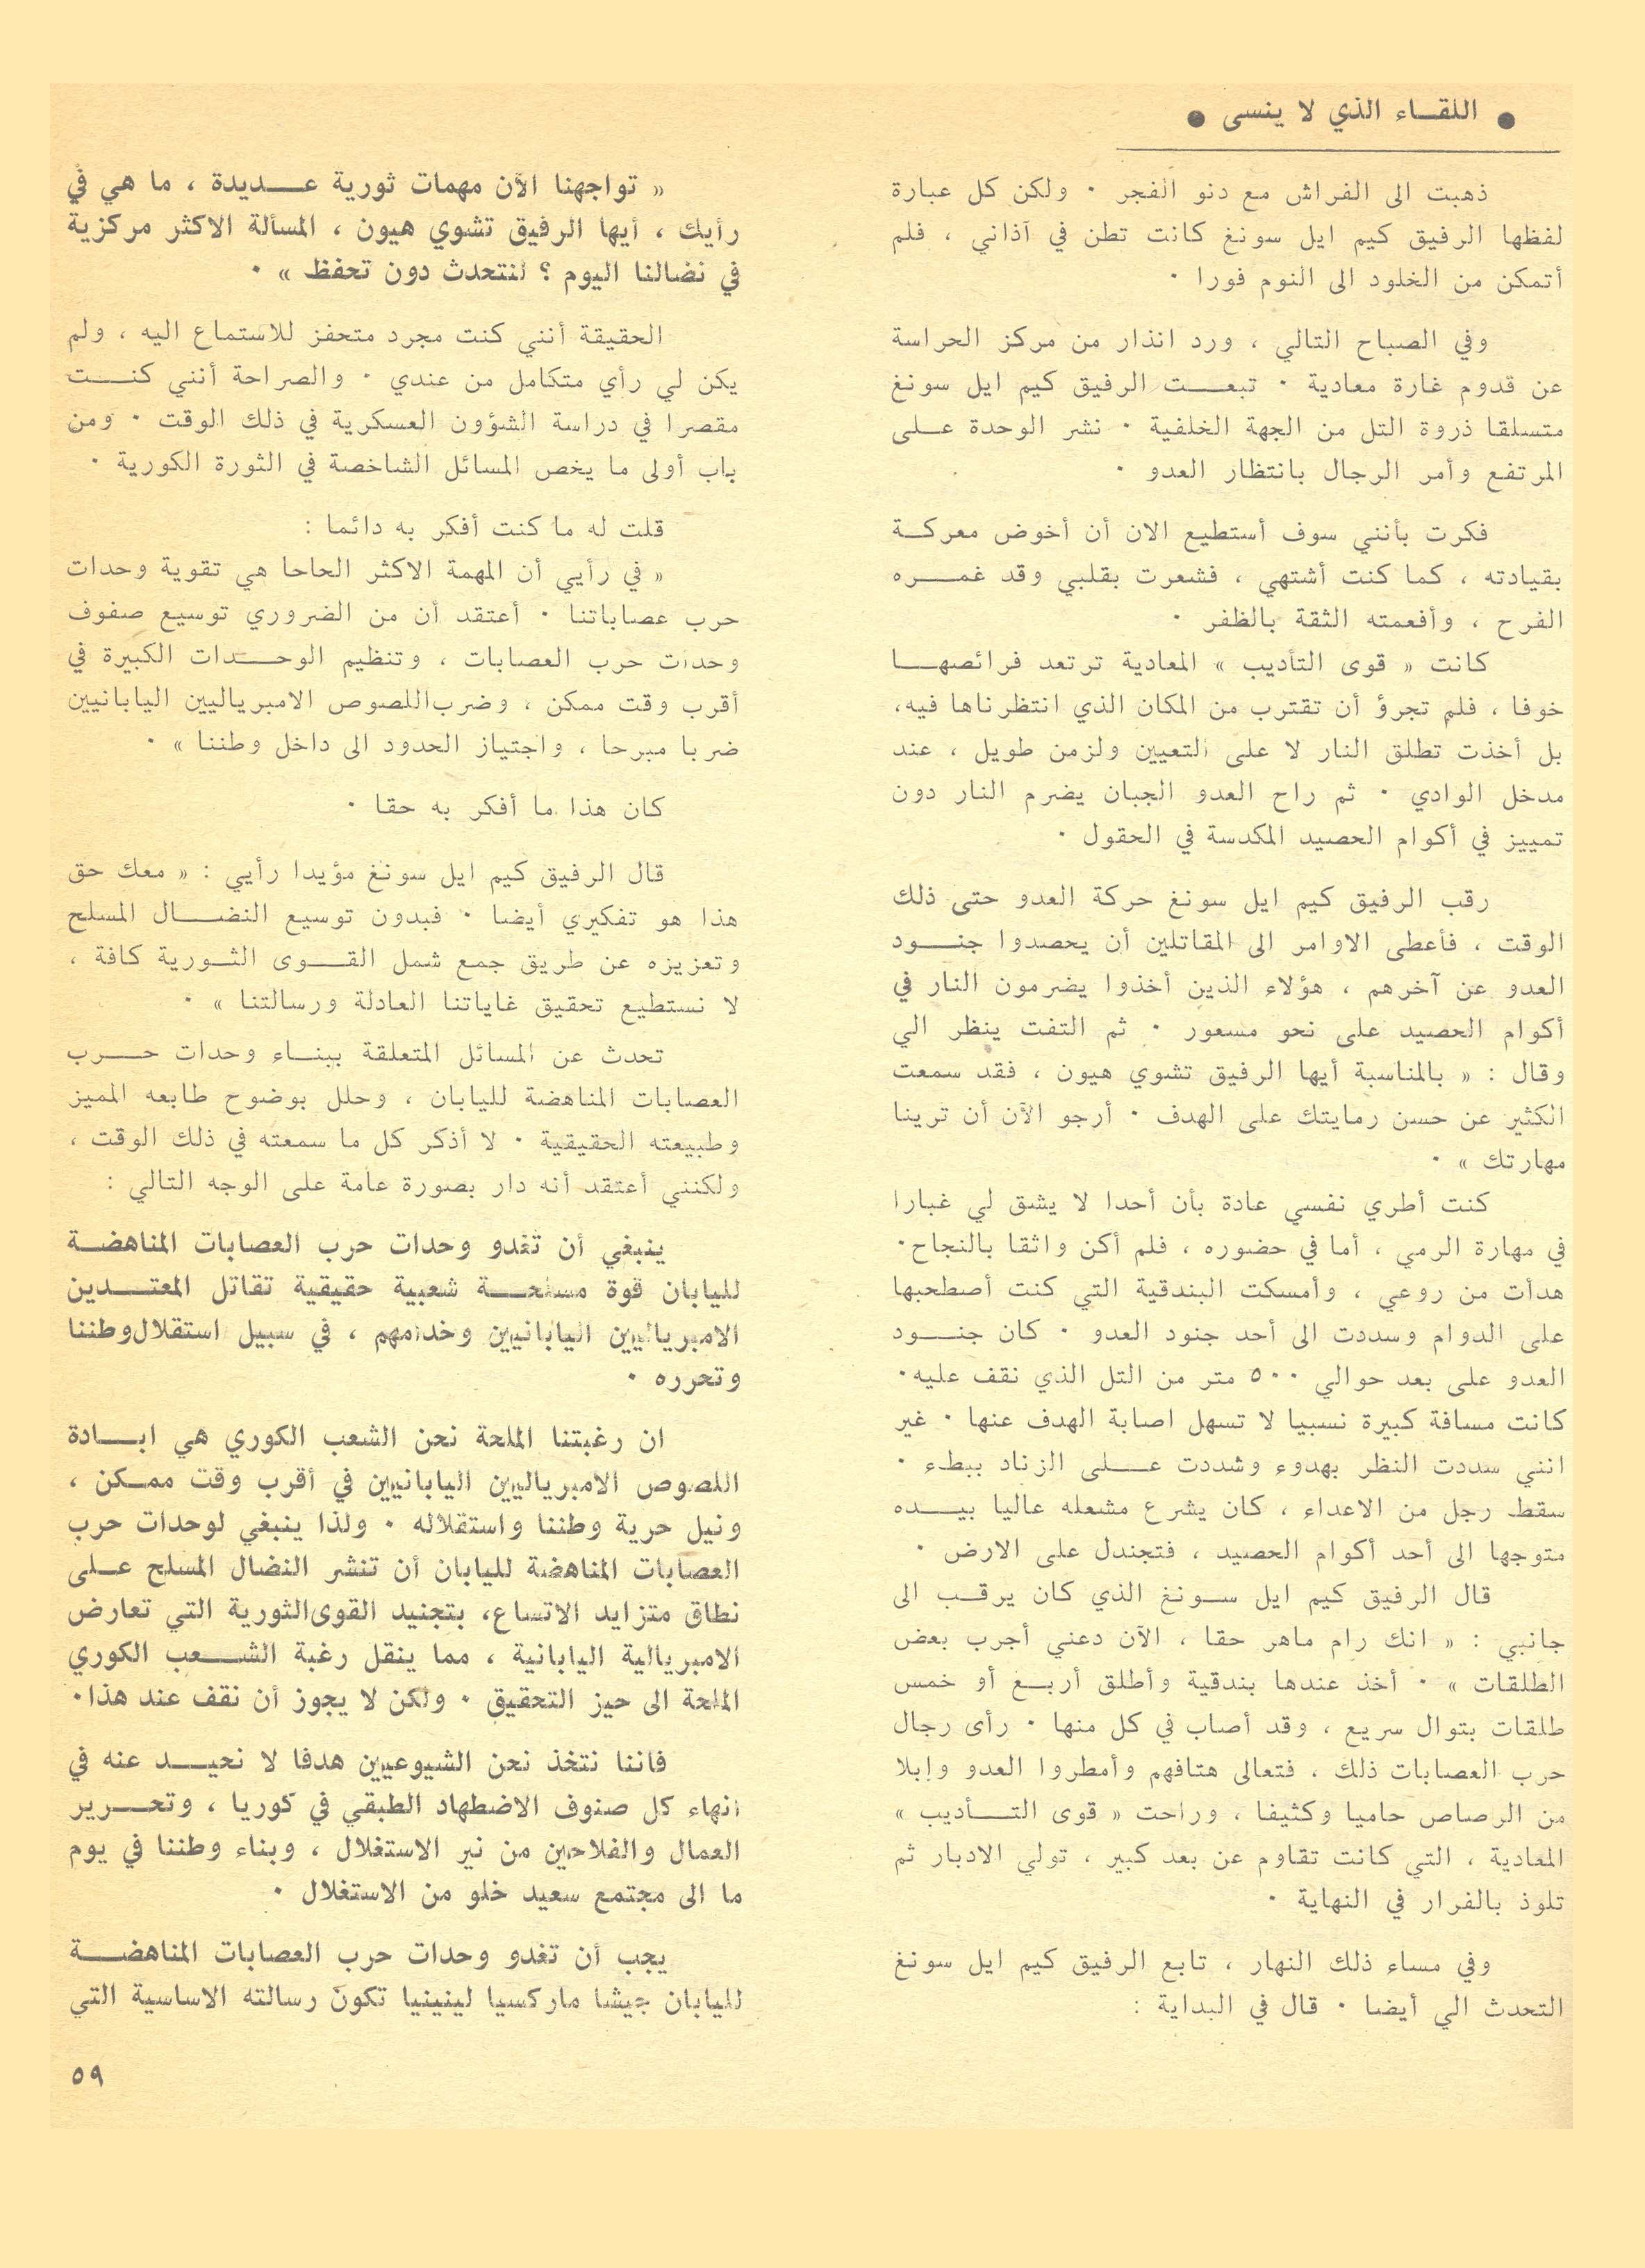 ● اللقاء الذي لا ينسى ●
ذهبت الى الفراش مع دنو الفجر ٠ ولكن كل عبارة
لفظها الرفيق كيم ايل سونغ كانت تطن في آذاني ، فلم
أتمكن من الخلود الى النوم فورا ٠
وفي الصباح التالي ، ورد انذار من مركز الحراسة
عن قدوم غارة معادية ٠ تبعت الرفيق كيم ايل سونغ
متسلقا ذروة التل من الجهة الخلفية ٠ نشر الوحدة على
المرتفع وأمر الرجال بانتظار العدو ٠
فكرت بأنني سوف أستطيع الان أن أخوض معركة
بقيادته ، كما كنت أشتهي ، فشعرت بقلبي وقد غمره
الفرح ، وأفعمته الثقة بالظفر ٠
كانت « قوى التأديب » المعادية ترتعد فرائصها
خوفا ، فلم تجرؤ أن تقترب من المكان الذي انتظرناها فيه،
بل أخذت تطلق النار لا على التعيين ولزمن طويل ، عند
مدخل الوادي ٠ ثم راح العدو الجبان يضرم النار دون
تمييز في أكوام الحصيد المكدسة في الحقول ٠
رقب الرفيق كيم ايل سونغ حركة العدو حتى ذلك
الوقت ، فأعطى الاوامر الى المقاتلين أن يحصدوا جنود
العدو عن آخرهم ، هؤلاء الذين أخذوا يضرمون النار في
أكوام الحصيد على نحو مسعور ٠ ثم التفت ينظر الي
وقال : « بالمناسبة أيها الرفيق تشوي هيون ، فقد سمعت
الكثير عن حسن رمايتك على الهدف ٠ أرجو الآن أن ترينا
مهارتك » ٠
كنت أطري نفسي عادة بأن أحدا لا يشق لي غبارا
في مهارة الرمي ، أما في حضوره ، فلم أكن واثقا بالنجاح٠
هدأت من روعي ، وأمسكت البندقية التي كنت أصطحبها
على الدوام وسددت الى أحد جنود العدو ٠ كان جنود
العدو على بعد حوالي ٥٠٠ متر من التل الذي نقف عليه٠
كانت مسافة كبيرة نسبيا لا تسهل اصابة الهدف عنها ٠ غير
انني سددت النظر بهدوء وشددت على الزناد ببطء ٠
سقط رجل من الاعداء ، كان يشرع مشعله عاليا بيده
متوجها الى أحد أكوام الحصيد ، فتجندل على الارض ٠
قال الرفيق كيم ايل سونغ الذي كان يرقب الى
جانبي : « انك رام ماهر حقا ، الآن دعني أجرب بعض
الطلقات » ٠ أخذ عندها بندقية وأطلق أربع أو خمس
طلقات بتوال سريع ، وقد أصاب في كل منها ٠ رأى رجال
حرب العصابات ذلك ، فتعالى هتافهم وأمطروا العدو وابلا
من الرصاص حاميا وكثيفا ، وراحت « قوى التأديب »
المعادية ، التي كانت تقاوم عن بعد كبير ، تولي الادبار ثم
تلوذ بالفرار في النهاية ٠
وفي مساء ذلك النهار ، تابع الرفيق كيم ايل سونغ
التحدث الي أيضا ٠ قال في البداية :
« تواجهنا الآن مهمات ثورية عديدة ، ما هي في
رأيك ، أيها الرفيق تشوي هيون ، المسألة الاكثر مركزية
في نضالنا اليوم ؟ لنتحدث دون تحفظ » ٠
الحقيقة أنني كنت مجرد متحفز للاستماع اليه ، ولم
يكن لي رأي متكامل من عندي ٠ والصراحة أنني كنت
مقصرا في دراسة الشؤون العسكرية في ذلك الوقت ٠ ومن
باب أولى ما يخص المسائل الشاخصة في الثورة الكورية ٠
قلت له ما كنت أفكر به دائما :
« في رأيي أن المهمة الاكثر الحاحا هي تقوية وحدات
حرب عصاباتنا ٠ أعتقد أن من الضروري توسيع صفوف
وحدات حرب العصابات ، وتنظيم الوحدات الكبيرة في
أقرب وقت ممكن ، وضرب اللصوص الامبرياليين اليابانيين
ضربا مبرحا ، واجتياز الحدود الى داخل وطننا » ٠
كان هذا ما أفكر به حقا ٠
قال الرفيق كيم ايل سونغ مؤيدا رأيي : « معك حق
هذا هو تفكيري أيضا ٠ فبدون توسيع النضال المسلح
وتعزيزه عن طريق جمع شمل القوى الثورية كافة ،
لا نستطيع تحقيق غاياتنا العادلة ورسالتنا » ٠
تحدث عن المسائل المتعلقة ببناء وحدات حرب
العصابات المناهضة لليابان ، وحلل بوضوح طابعه المميز
وطبيعته الحقيقية ٠ لا أذكر كل ما سمعته في ذلك الوقت ،
ولكنني أعتقد أنه دار بصورة عامة على الوجه التالي :
ينبغي أن تغدو وحدات حرب العصابات المناهضة
لليابان قوة مسلحة شعبية حقيقية تقاتل المعتدين
الامبرياليين اليابانيين وخدامهم ، في سبيل استقلال وطننا
وتحرره ٠
ان رغبتنا الملحة نحن الشعب الكوري هي ابادة
اللصوص الامبرياليين اليابانيين في أقرب وقت ممكن ،
ونيل حرية وطننا واستقلاله ٠ ولذا ينبغي لوحدات حرب
العصابات المناهضة لليابان أن تنشر النضال المسلح على
نطاق متزايد الاتساع، بتجنيد القوى الثورية التي تعارض
الامبريالية اليابانية ، مما ينقل رغبة الشعب الكوري
الملحة الى حيز التحقيق ٠ ولكن لا يجوز أن نقف عند هذا٠
فاننا نتخذ نحن الشيوعيين هدفا لا نحيد عنه في
انهاء كل صنوف الاضطهاد الطبقي في كوريا ، وتحرير
العمال والفلاحين من نير الاستغلال ، وبناء وطننا في يوم
ما الى مجتمع سعيد خلو من الاستغلال ٠
يجب أن تغدو وحدات حرب العصابات المناهضة
لليابان جيشا ماركسيا لينينيا تكون رسالته الاساسية التي
٥٩